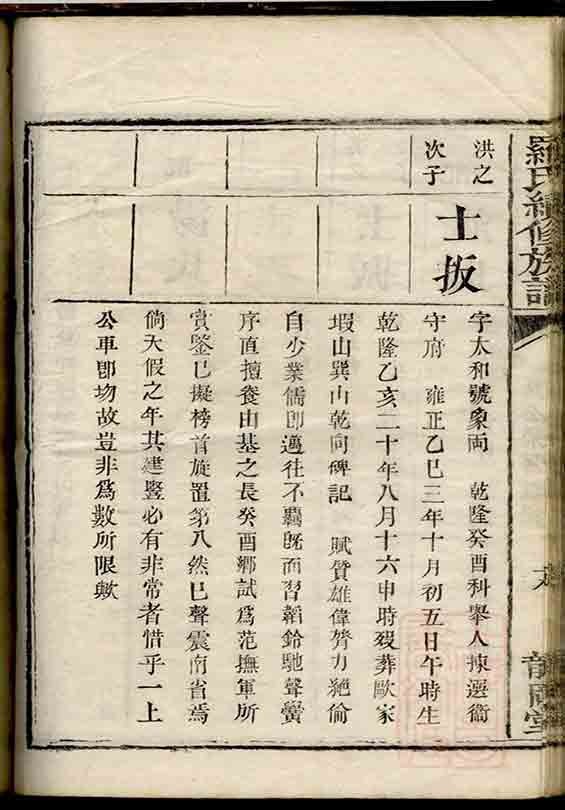 羅氏續修族譜
洪之
次子
士扳
字太和號象兩 乾隆癸酉科舉人揀選衛
守府 雍正乙巳三年十月初五日午時生
乾隆乙亥二十年八月十六申時歿葬歐家
塅山巽山乾向碑記 賦質雄偉膂力絕倫
自少業儒即邁往不羈旣而習韜鈐馳聲黌
序直擅養由基之長癸酉鄉試爲范撫軍所
賞鑒已擬榜首旋置第八然巳聲震南省焉
倘天假之年其建豎必有非常者惜乎一上
公車卽歾故豈非爲數所限歟
堂